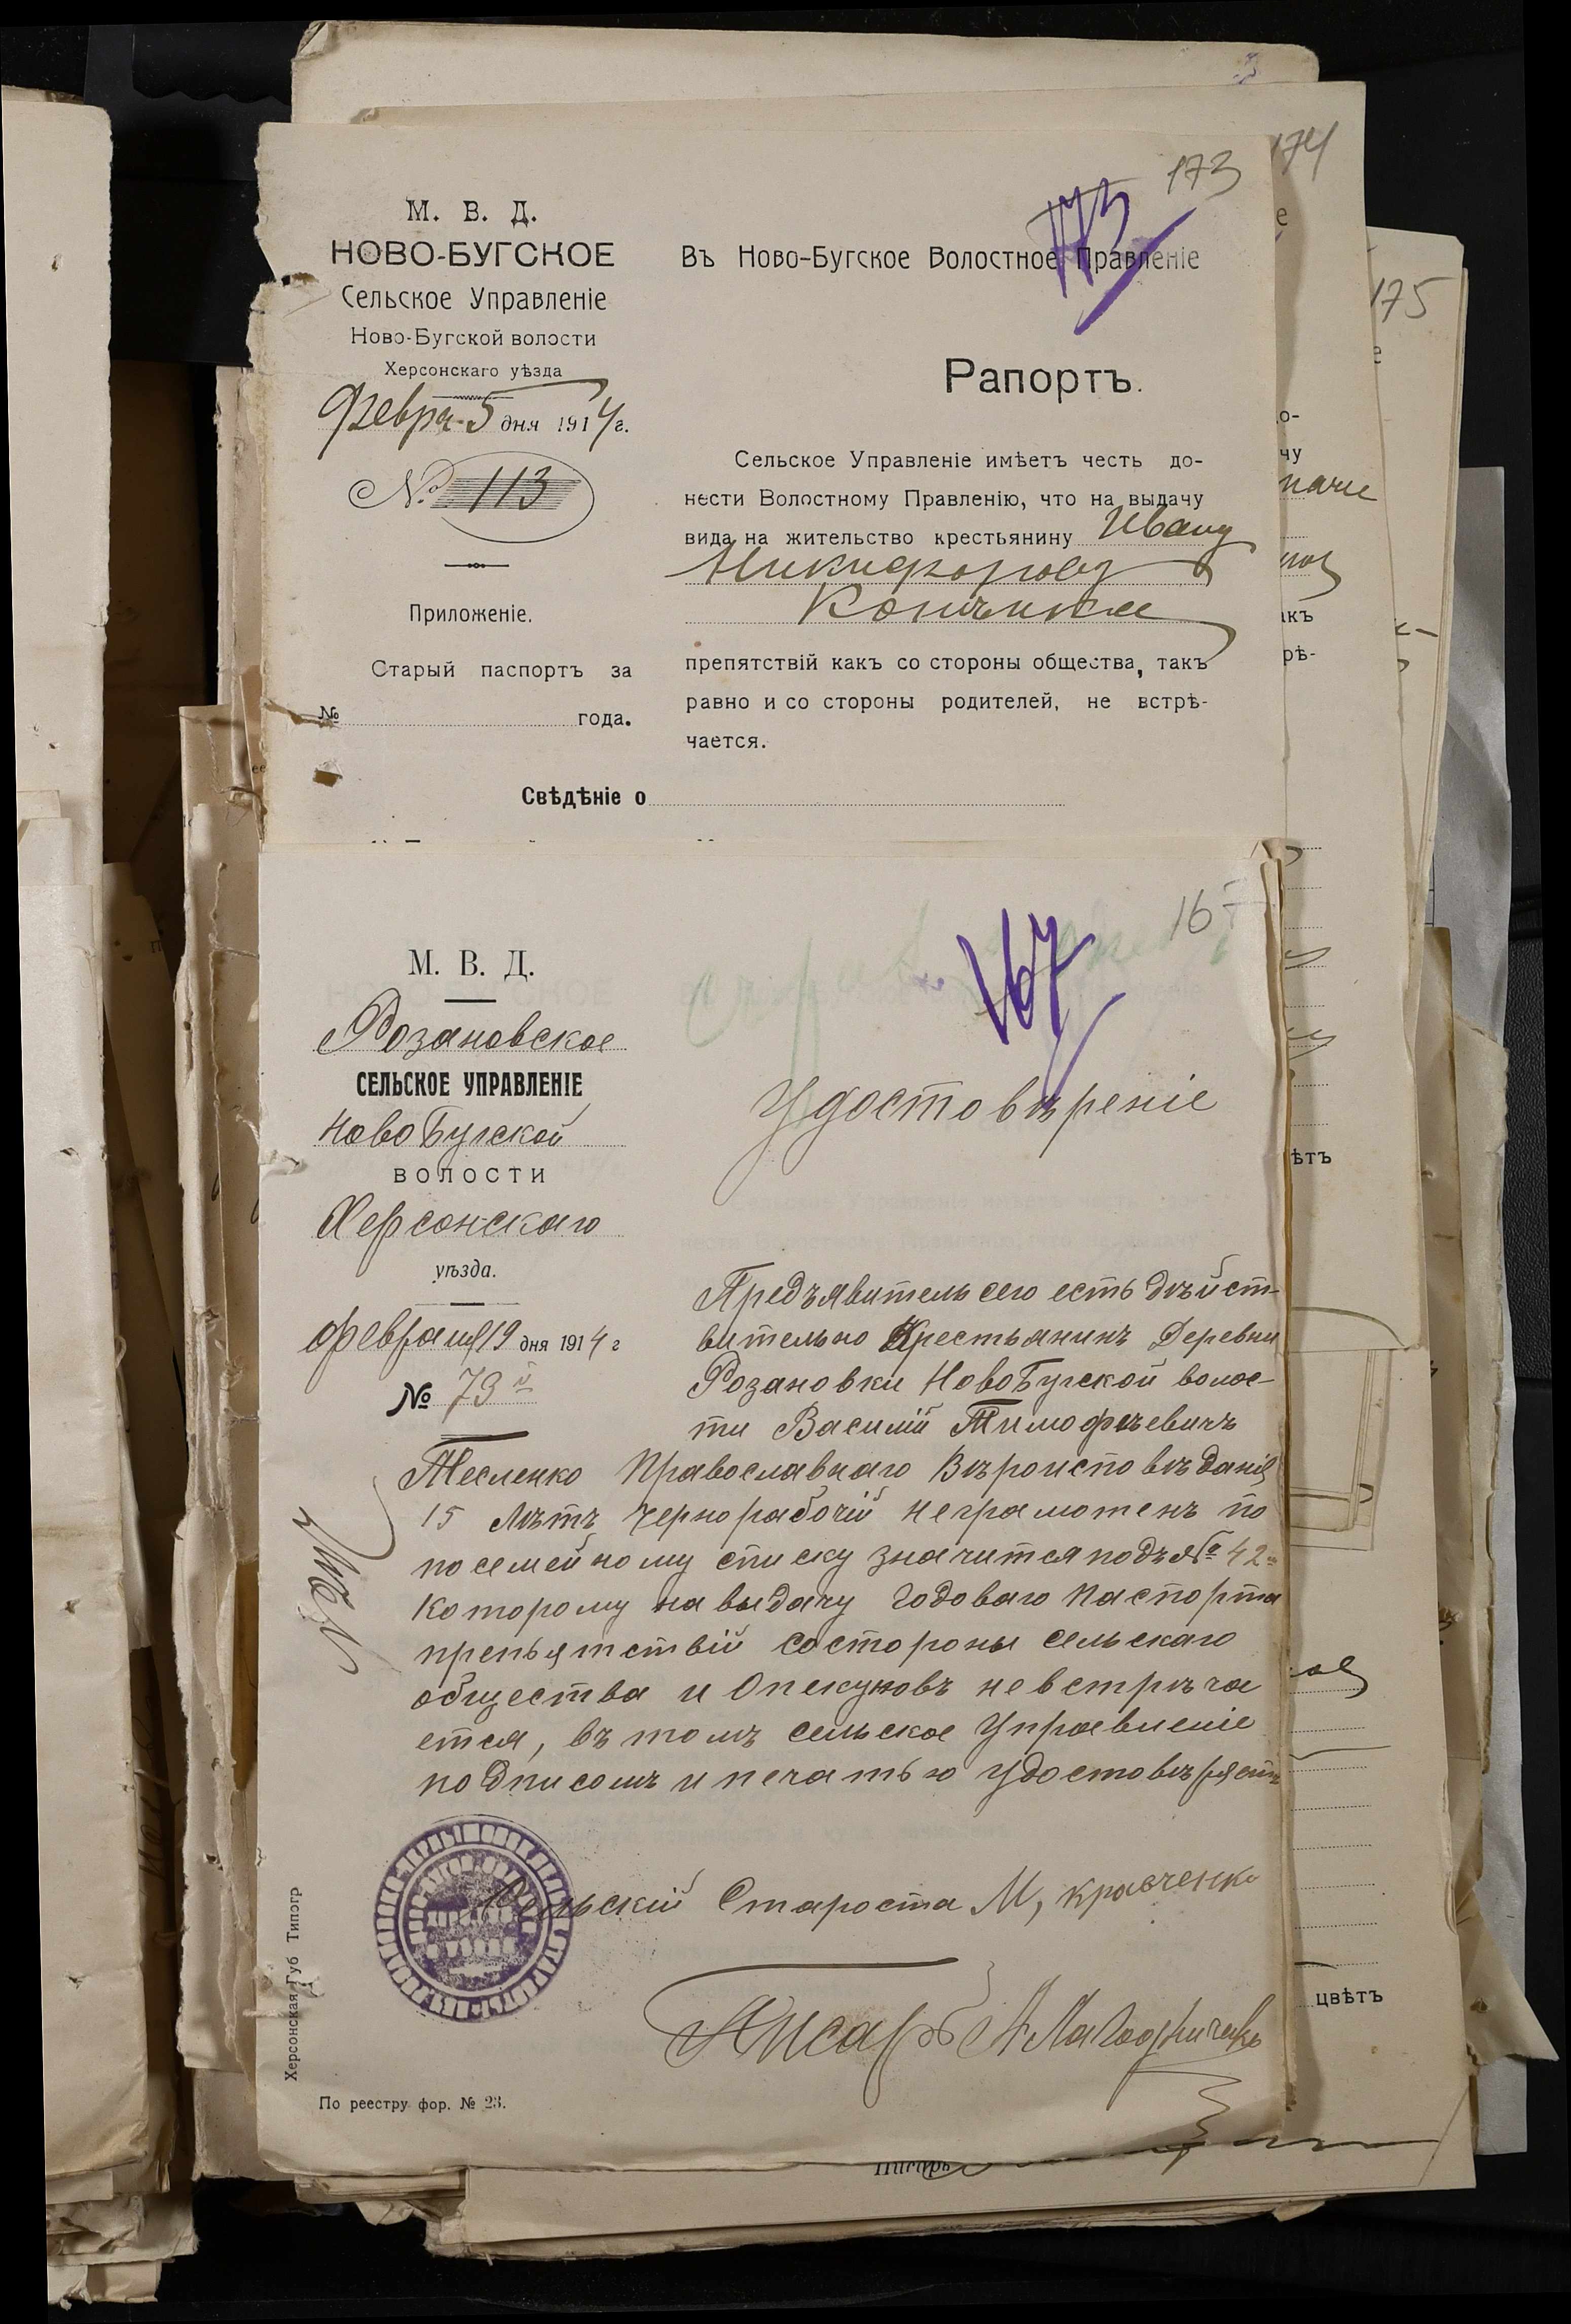 173
173
М. В. Д.
НОВО-БУГСКОЕ
Сельское Управленіе
Ново-Бугской волости
Херсонскаго уѣзда
Февра 5 дня 1914 г.
№ 113
Приложеніе.
Старый паспортъ за
№ года.
Въ Ново-Бугское Волостное Правленіе
Рапортъ.
Сельское Управленіе имѣетъ честь до-
нести Волостному Правленію, что на выдачу
вида на жительство крестьянину Ивану
Никифорову
препятствій какъ со стороны общества, такъ
равно и со стороны родителей, не встрѣ-
чается.
Свѣдѣніе о
174
175
167
М. В. Д.
Розановское
СЕЛЬСКОЕ УПРАВЛЕНІЕ
Ново Бугской
ВОЛОСТИ
Херсонскаго
уѣзда.
февраля 19 дня 1914 г
№ 79й
Удостовѣреніе
Предъявитель сего есть дѣйст-
вительно Крестьянинъ Деревни
Розановки Ново Бугской волос-
ти Василій Тимофѣевичъ
Тесленко Православнаго Вѣроисповѣданія
15 лѣтъ чернорабочій неграмотенъ по
посемейному списку значится подъ № 42м
которому на выдачу годоваго паспорта
препьятствій состороны сельскаго
общества и Опекуновъ невстрѣча
ется, въ томъ сельское Управленіе
подписомъ и печатью удостовѣряетъ
Сельскій Староста М, Кравченко
Писарь
Херсонская Губ Типогр
По реестру фор. № 23.
цвѣтъ
Писарь